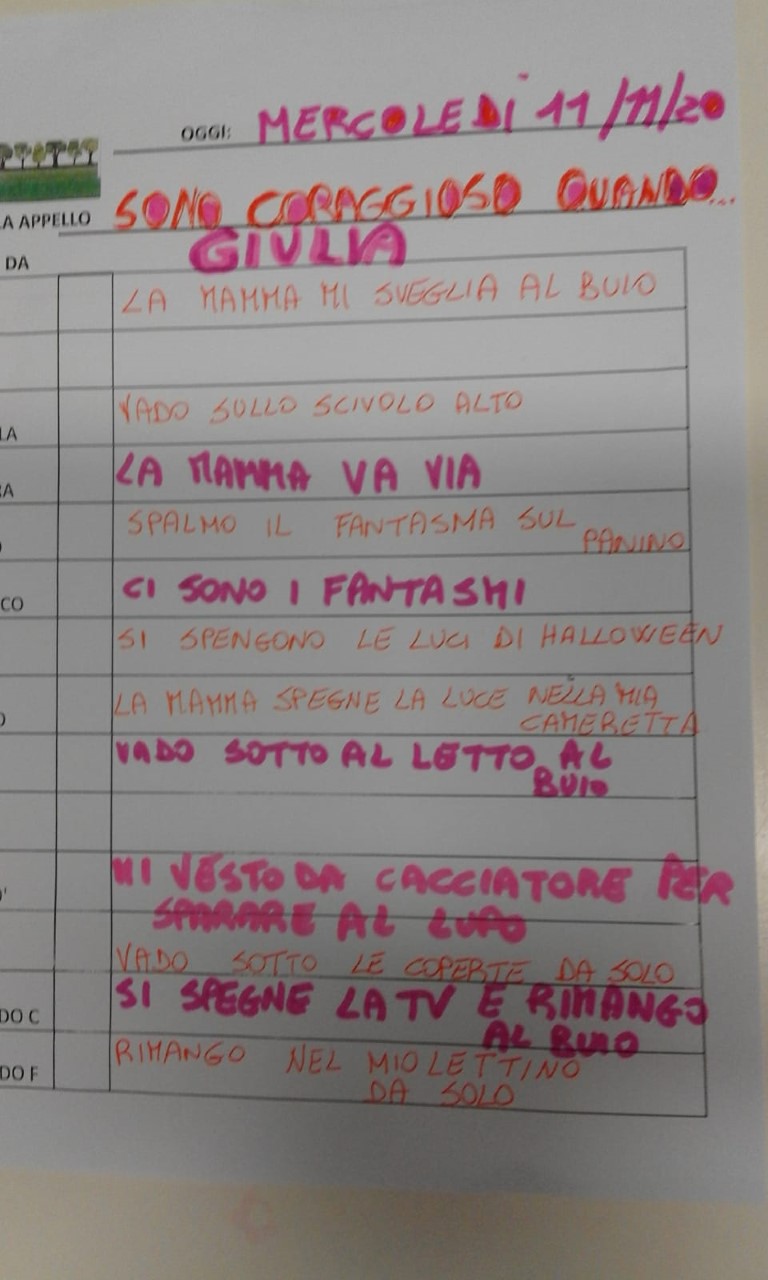 OGGI: MERCOLEDÌ 11/11/20
LA APPELLO SONO CORAGGIOSO QUANDO...
DA GIULIA
LA MAMMA MI SVEGLIA AL BUIO
VADO SULLO SCIVOLO ALTO
LA
LA MAMMA VA VIA
RA
SPALMO IL FANTASMA SUL
PANINO
O
CI SONO I FANTASMI
CO
SI SPENGONO LE LUCI DI HALLOWEEN
LA MAMMA SPEGNE LA LUCE NELLA MIA
CAMERETTA
O
VADO SOTTO AL LETTO AL
BUIO
MI VESTO DA CACCIATORE PER
O'
SPARARE AL LUPO
VADO SOTTO LE COPERTE DA SOLO
SI SPEGNE LA TV E RIMANGO
DO C
AL BUIO
RIMANGO NEL MIO LETTINO
DO F
DA SOLO